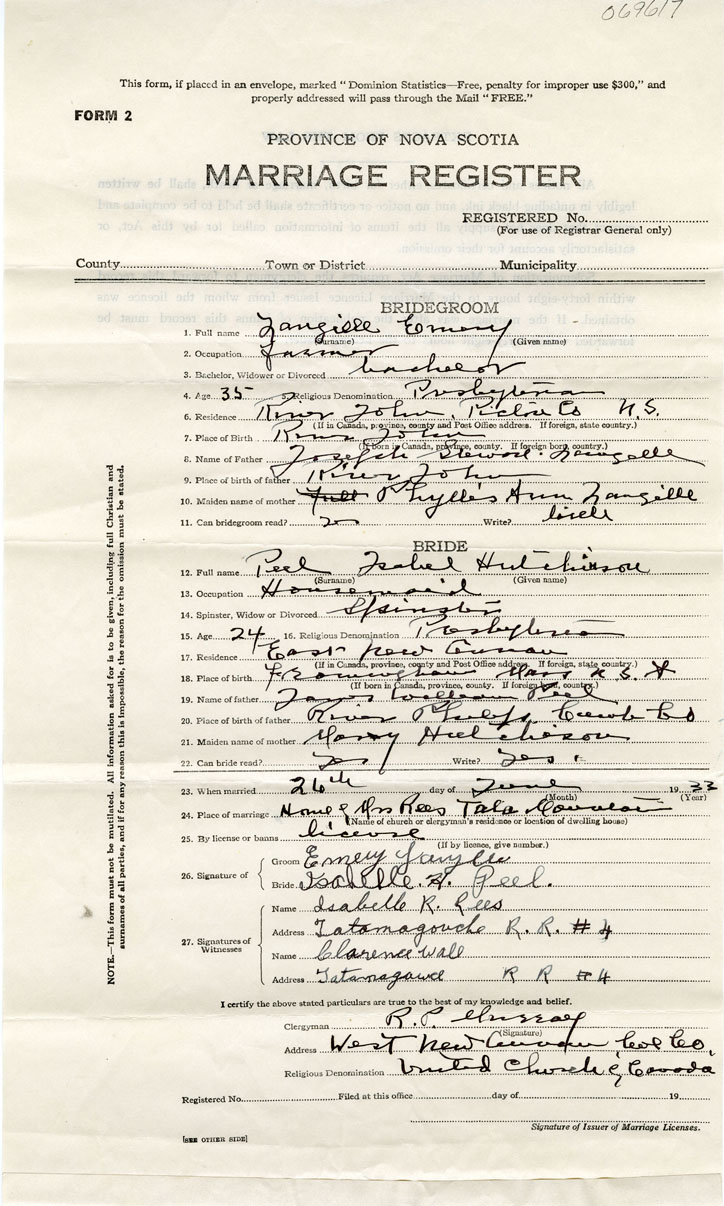 069617
This form, if placed in an envelope, marked “Dominion Statistics—Free, penalty for improper use $300,” and
properly addressed will pass through the Mail “FREE.”
FORM 2
PROVINCE OF NOVA SCOTIA
MARRIAGE REGISTER
REGISTERED No.
(For use of Registrar General only)
County Town or District Municipality
BRIDEGROOM
1. Full name Langille Emery
(Surname) (Given name)
2. Occupation farmer
3. Bachelor, Widower or Divorced bachelor
4. Age 35 5. Religious Denomination Presbyterian
6. Residence River John, Pictou Co N.S.
(If in Canada, province, county and Post Office address. If foreign, state country.)
7. Place of Birth River John
(If born in Canada, province, county. If foreign born, country.)
8. Name of Father Joseph Steward Langille
9. Place of birth of father River John
10. Maiden name of mother Phyllis Ann Langille
11. Can bridegroom read? Write?
BRIDE
12. Full name Peel Isabel Hutchinson
(Surname) (Given name)
13. Occupation Housemaid
14. Spinster, Widow or Divorced Spinster
15. Age 24 16. Religious Denomination Presbyterian
17. Residence East New Annan
(If in Canada, province, county and Post Office address. If foreign, state country.)
18. Place of birth Framingham Mass U.S.A
(If born in Canada, province, county. If foreign born, country.)
19. Name of father James William Peel
20. Place of birth of father River Philip Cumb Co
21. Maiden name of mother Mary Hutchison
22. Can bride read? yes Write? yes
23. When married 26th day of June 1933
(Month) (Year)
24. Place of marriage Home of Mrs Rees Tata Mountain
(Name of church or clergyman's residence or location of dwelling house)
25. By license or banns license
(If by licence, give number.)
26. Signature of
Groom Emery Langille
Bride Isabelle. H. Peel.
27. Signatures of
Witnesses
Name Isabelle R. Rees
Address Tatamagouche R. R. # 4
Name Clarence Wall
Address R R #4
I certify the above stated particulars are true to the best of my knowledge and belief.
Clergyman R. P. Murray
(Signature)
Address West New Annan Col Co.
Religious Denomination United Church of Canada
Registered No. Filed at this office day of 19
Signature of Issuer of Marriage Licenses.
[SEE OTHER SIDE]
NOTE.—This form must not be mutilated. All information asked for is to be given, including full Christian and
surnames of all parties, and if for any reason this is impossible, the reason for the omission must be stated.